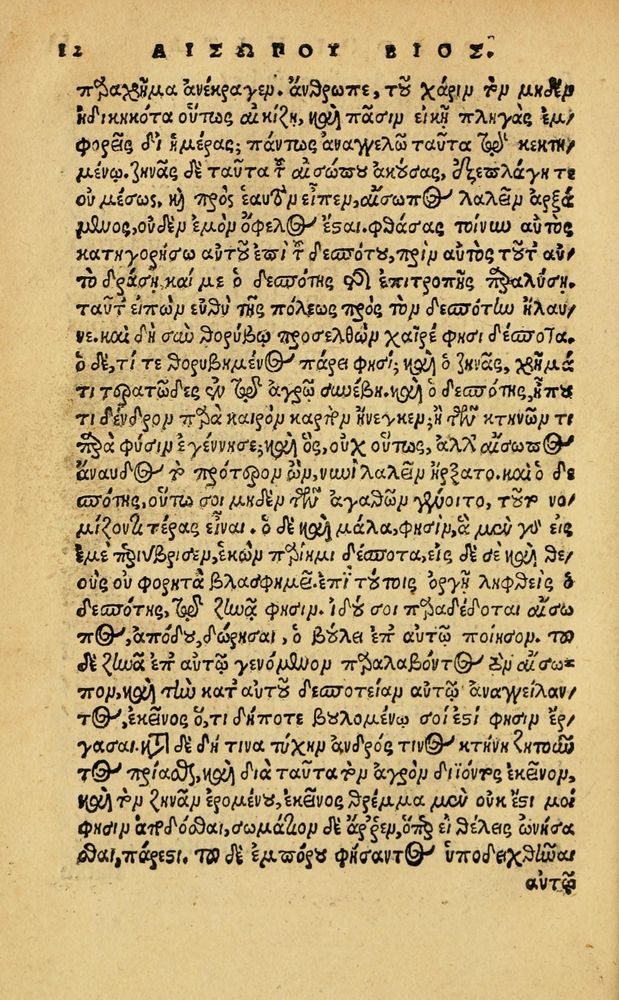 12 ΑΙΣΩΠΟΥ ΒΙΟΣ.
πραγ̃μα ἀνέκραγεν. ἄνθρωπε, τοῦ χάριν τὸν μηδὲν
ἠδικηκότα οὕτως αἰκίζῃ, καὶ πᾶσιν εἰκῆ πληγὰς ἐμ/
φορεῖς δι' ἡμέρας; πάντως ἀναγγελῶ ταῦτα τῷ κεκτη/
μένῳ. ζηνᾶς δὲ ταῦτα τοῦ αἰσώπου ἀκούσας, ἐξεπλάγη τε
οὐ μέσως, καὶ πρὸς ἑαυτὸν εἶπεν, αἴσωπος λαλεῖν ἀρξά
μενος, οὐδὲν ἐμὸν ὄφελος ἔσται. φθάσας τοίνυν αὐτὸς
κατηγορήσω αὐτοῦ ἐπὶ τοῦ δεσπότου, πρὶν αὐτὸς τοῦτ' αὐ/
τὸ δράσῃ, καί με ὁ δεσπότης τῆς ἐπιτροπῆς παραλύσῃ.
ταῦτ' εἰπὼν εὐθὺ τῆς πόλεως πρὸς τὸν δεσπότην ἤλαυ/
νε. καὶ δὴ σὺν θορύβῳ προσελθὼν χαῖρέ φησι δέσποτα.
ὁ δὲ, τί τεθορυβημένος πάρει φησί; καὶ ὁ ζηνᾶς, χρῆμά
τι τερατῶδες ἐν τῷ ἀγρῷ συνέβη. καὶ ὁ δεσπότης, ἤπου
τι δένδρον παρὰ καιρὸν καρπὸν ἤνεγκεν; ἢ τῶν κτηνῶν τι
παρὰ φύσιν ἐγέννησε; καὶ ὃς, οὐχ οὕτως, ἀλλ' αἴσωπος
ἄναυδος τὸ πρότερον ὢν, νυνὶ λαλεῖν ἤρξατο. καὶ ὁ δε
σπότης, οὕτω σοι μηδὲν τῶν ἀγαθῶν γένοιτο, τοῦτο νο/
μίζοντι τέρας εἶναι. ὁ δὲ καὶ μάλα, φησὶν, ἃ μὲν γὰρ εἰς
ἐμὲ παρύβρισεν, ἑκὼν παρίημι δέσποτα, εἰς δὲ σὲ καὶ θε/
οὺς οὐ φορητὰ βλασφημεῖ. ἐπὶ τούτοις ὀργῇ ληφθεὶς ὁ
δεσπότης, τῷ ζηνᾷ φησιν. ἰδού σοι παραδέδοται αἴσω
πος, ἀπόδου, δώρησαι, ὃ βούλει ἐπ' αὐτῷ ποίησον. τοῦ
δὲ ζηνᾶ ἐπ' αὐτῷ γενόμενον παραλαβόντος τὸν αἴσω=
πον, καὶ τὴν κατ' αὐτοῦ δεσποτείαν αὐτῷ ἀναγγείλαν/
τος, ἐκεῖνος ὅ, τι δήποτε βουλομένῳ σοί ἐστί φησιν ἐρ/
γασαι. κατὰ δὲ δή τινα τύχην ἀνδρός τινος κτήνη ζητοῦν
τος πρίασθαι, καὶ διὰ ταῦτα τὸν ἀγρὸν διϊόντος ἐκεῖνον,
καὶ τὸν ζηνᾶν ἐρομένου, ἐκεῖνος θρέμμα μὲν οὐκ ἔστι μοί
φησιν ἀποδόσθαι, σωμάτιον δὲ ἄρρεν, ὅπερ εἰ θέλεις ὠνήσα
σθαι, πάρεστι. τοῦ δὲ ἐμπόρου φήσαντος ὑποδειχθῆναι
αὐτῷ